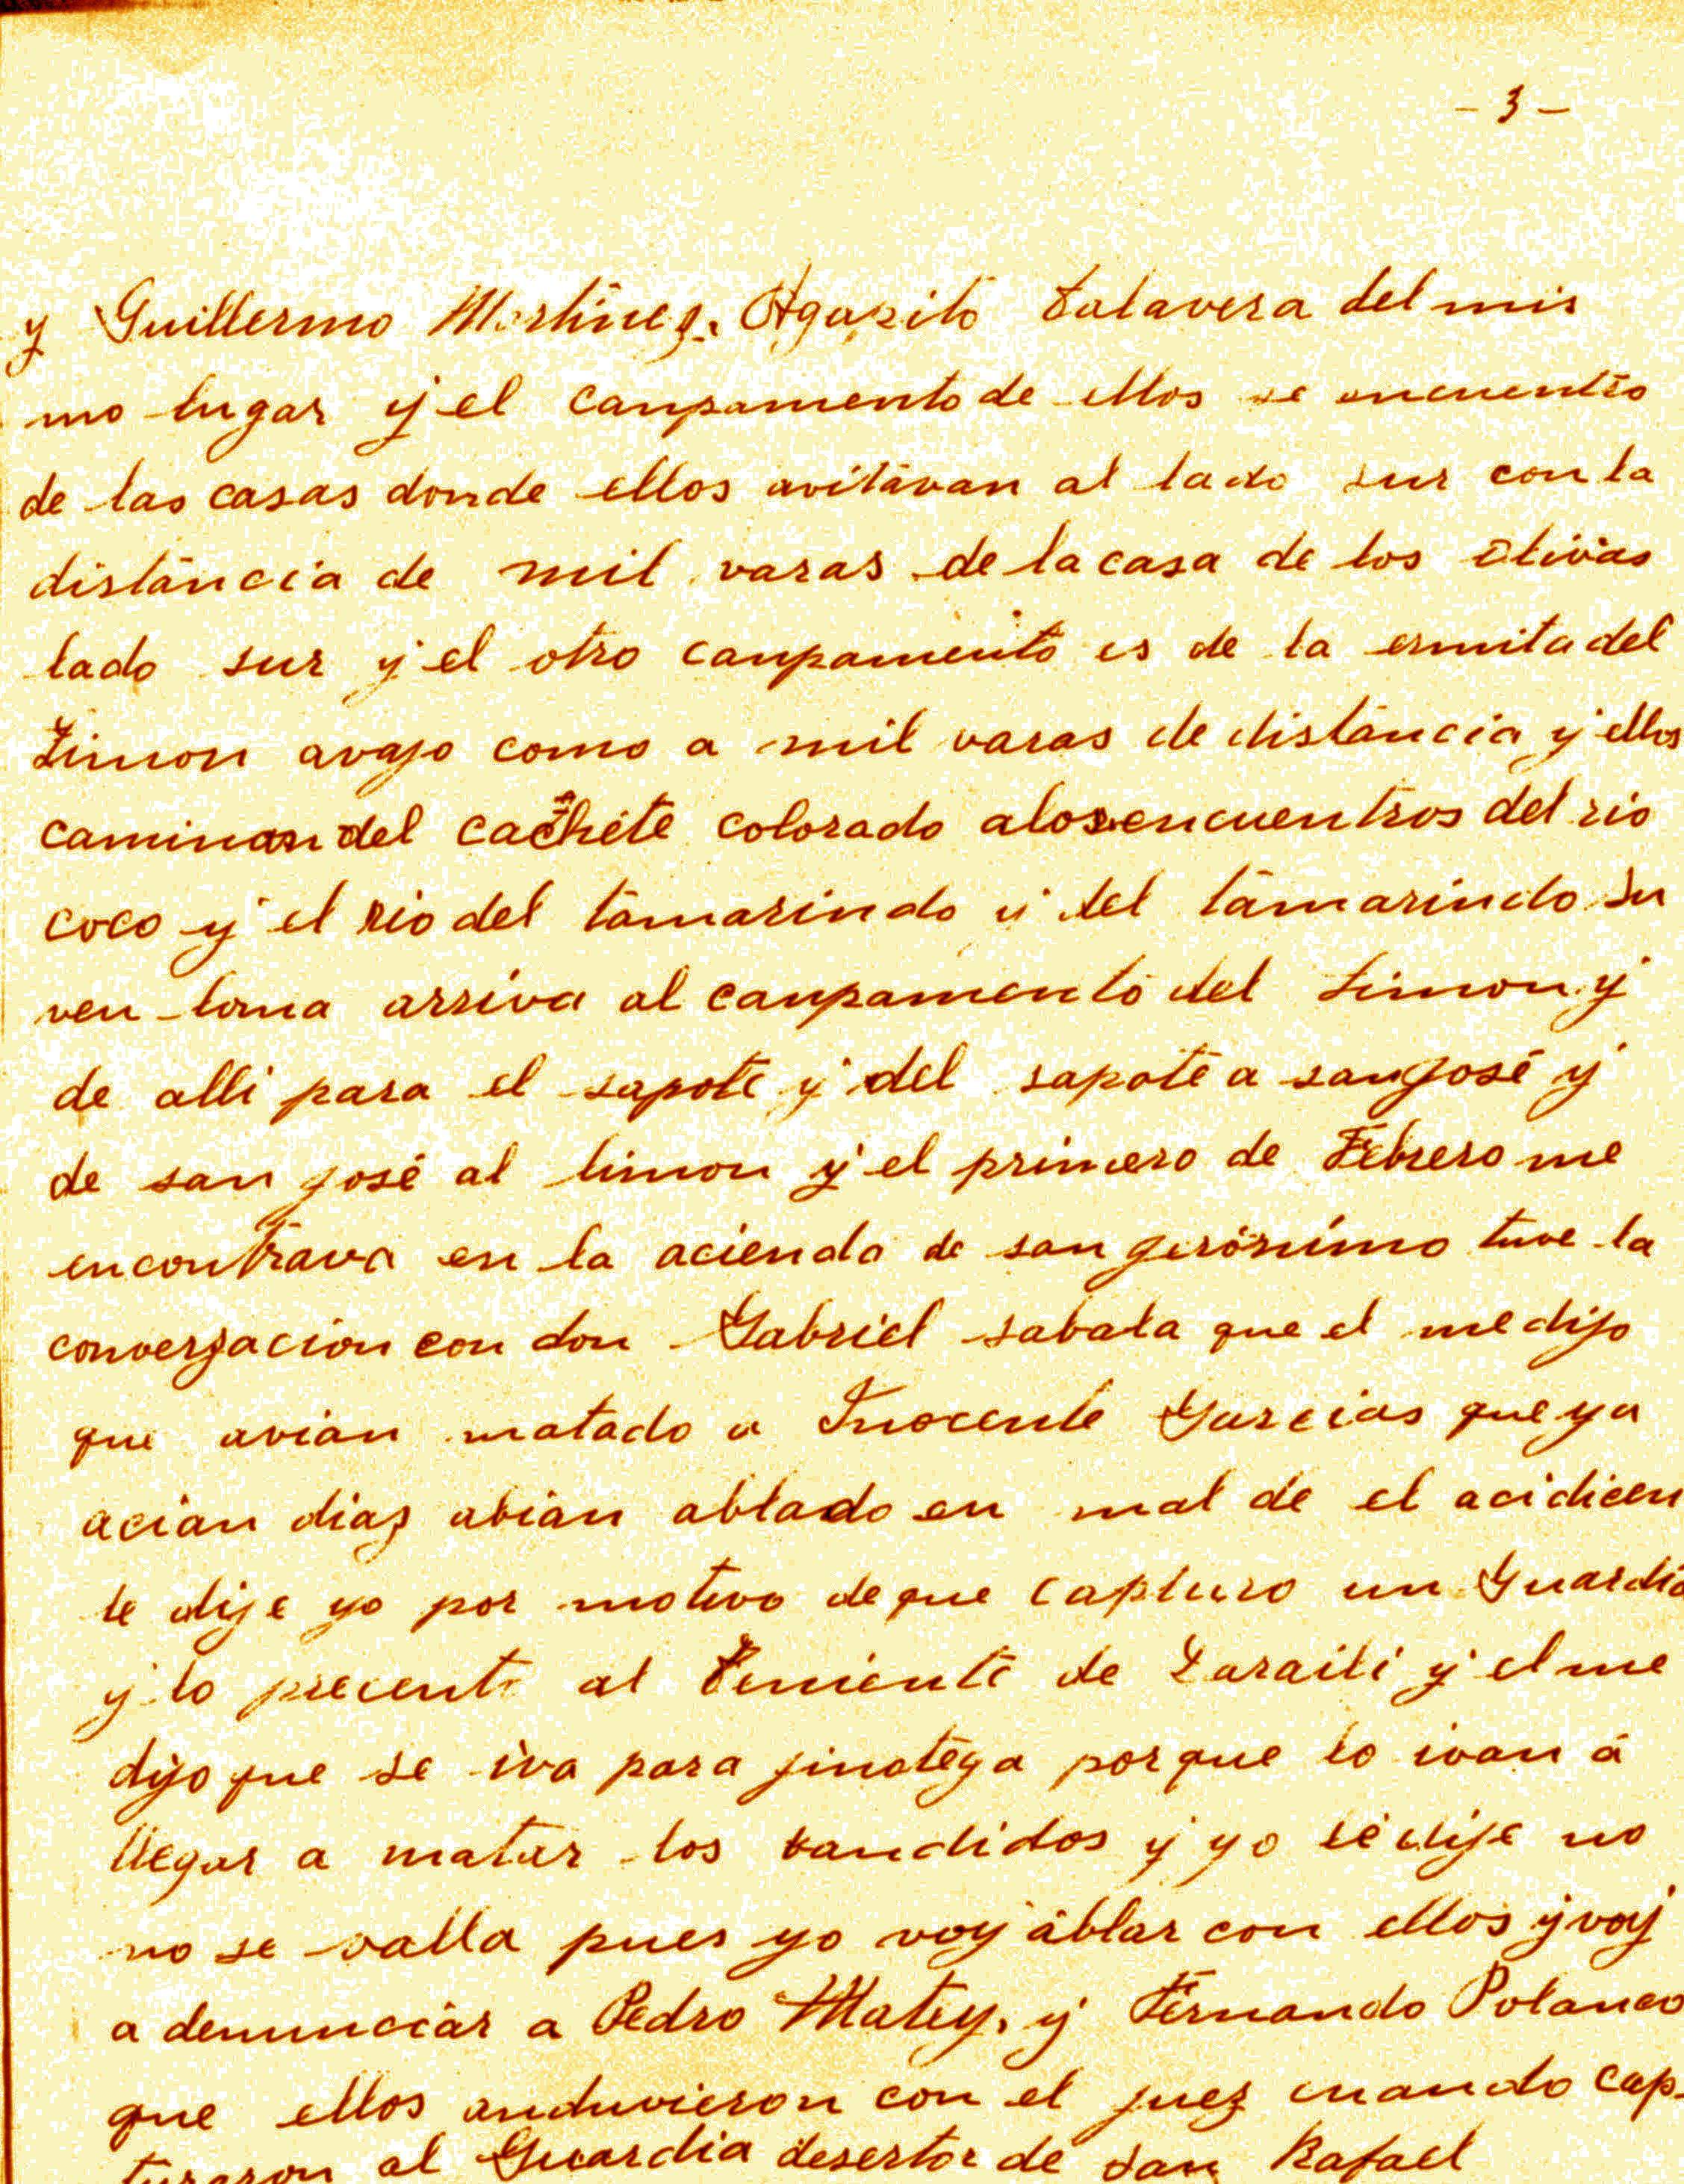 - 3 -
y Guillermo Martinez. Agapito Talavera del mis
mo lugar y el canpamento de ellos se encuentro
de las casas donde ellos avitavan al lado sur con la
distancia de mil varas de la casa de los Olivas
lado sur y el otro canpamento es de la ermita del
Limon avajo como a mil varas de distancia y ellos
caminan del cachete colorado a los encuentros del rio
coco y el rio del tamarindo y del tamarindo su
ven loma arriva al canpamento del Limon y
de alli para el sapote y del sapote a san José y
de san josé al limon y el primero de Febrero me
encontrava en la acienda de san gerónimo tuve la
conversacion con don Gabriel sabala que el me dijo
que avian matado a Inocente Garcias que ya
acian diaz abian ablado en mal de el aci dicen
le dije yo por motivo de que capturo un Guardia
y lo precento al Teniente de Yaraili y el me
dijo que se iva para jinotega porque lo ivan a
llegar a matar los vandidos y yo le dije no
no se valla pues yo voy ablar con ellos y voy
a denunciar a Pedro Matey, y Fernando Polanco
que ellos anduvieron con el juez cuando cap-
turaron al Guardia desertor de San Rafael